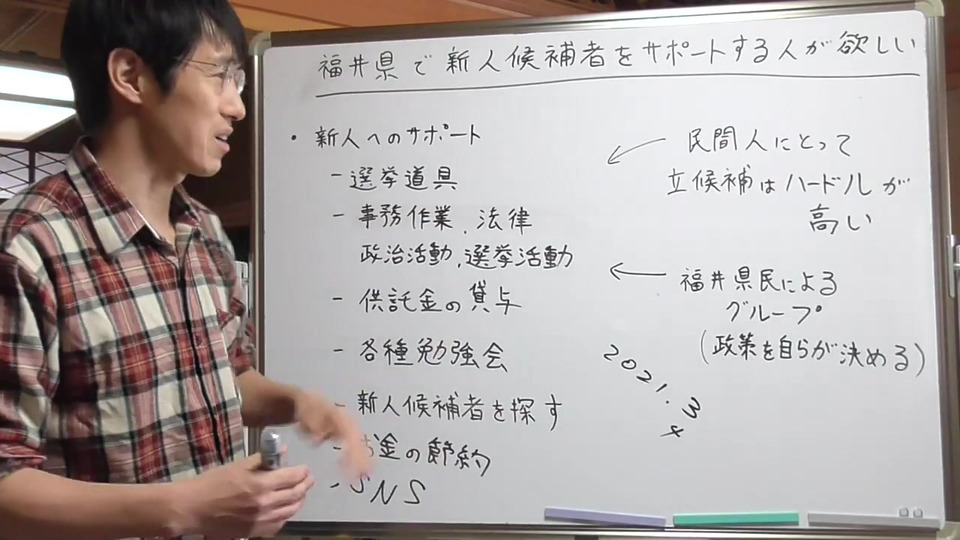 福井県で新人候補者をサポートする人が欲しい
• 新人へのサポート
- 選挙道具
- 事務作業、法律
政治活動、選挙活動
- 供託金の貸与
- 各種勉強会
- 新人候補者を探す
金の節約
- SNS
← 民間人にとって
立候補はハードルが
高い
← 福井県民による
グループ
(政策を自らが決める)
2021.3